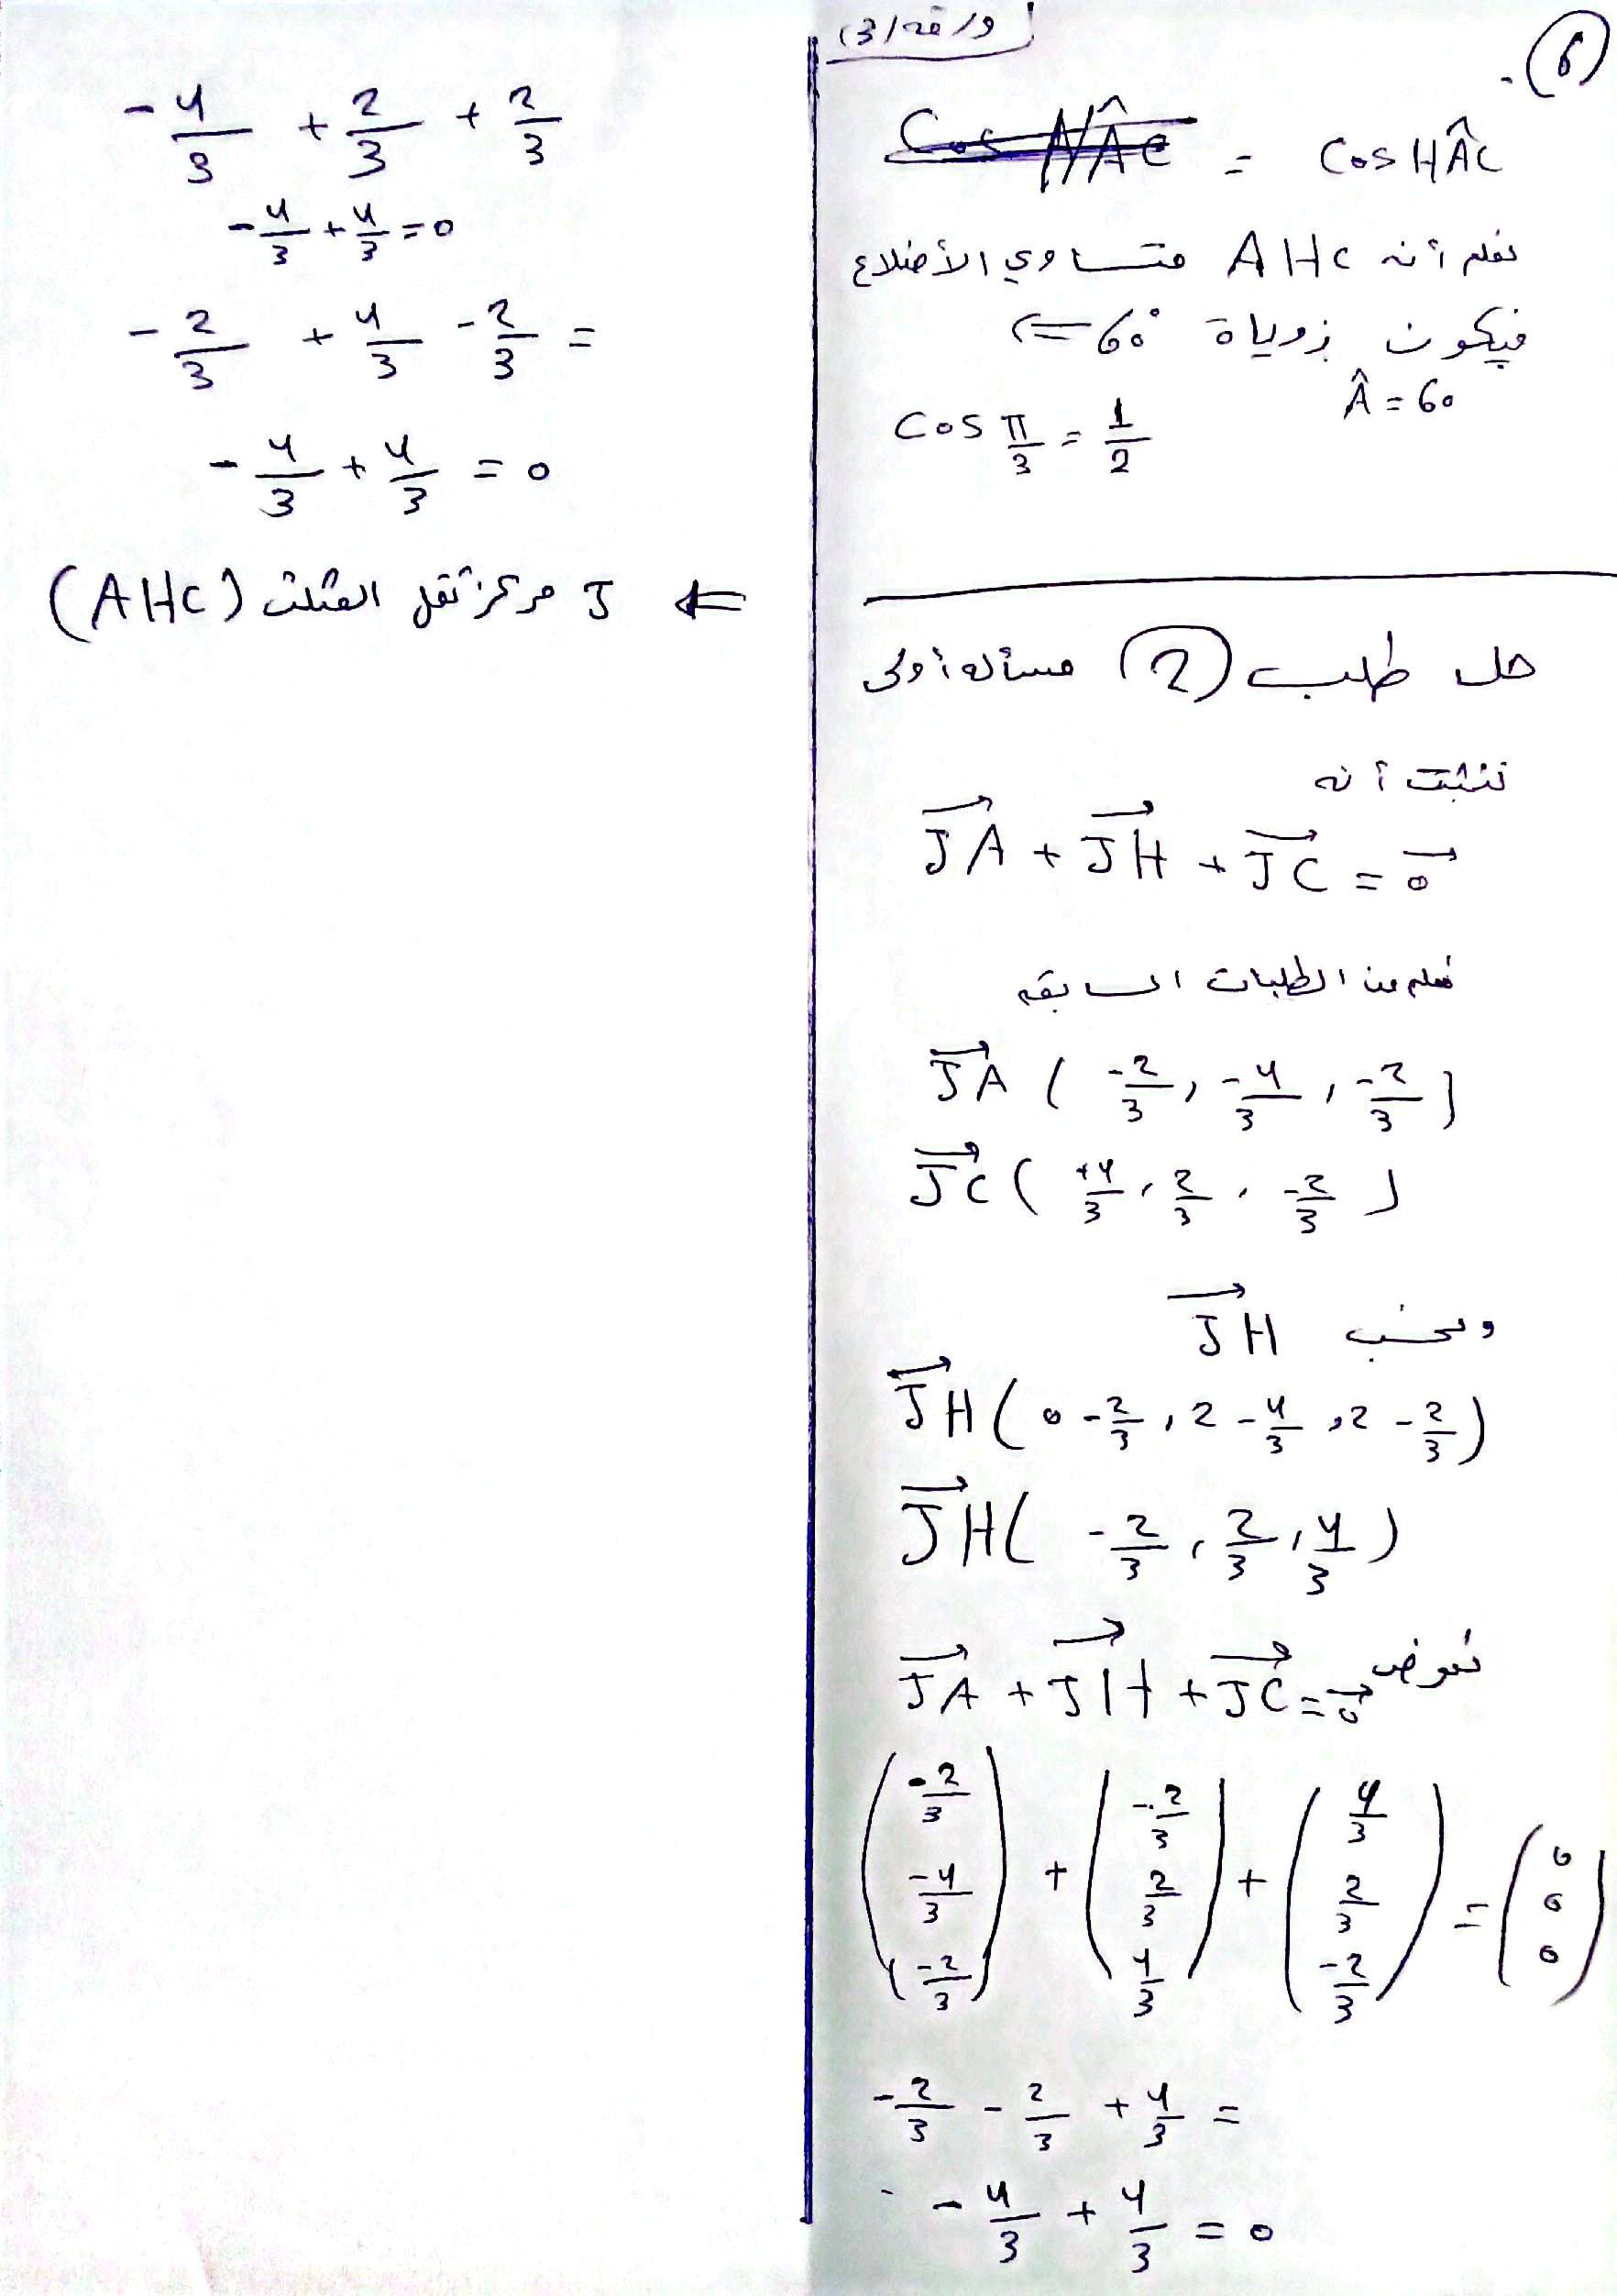 ورقة (3)
(6)
Cos HÂC =
نعلم أنه AHC متساوي الأضلاع
فيكون زوياة 60° <=
Â = 60
Cos π/3 = 1/2
حل طلب (2) مسألة أولى
نثبت أنه
JA + JH + JC = 0
نعلم من الطلبات السابقة
JA ( -2/3 , -4/3 , -2/3 )
JC ( +4/3 , 2/3 , -2/3 )
ونحسب JH
JH ( 0 - 2/3 , 2 - 4/3 , 2 - 2/3 )
JH ( -2/3 , 2/3 , 4/3 )
نعوض JA + JH + JC = 0
( -2/3 -4/3 -2/3 ) + ( -2/3 2/3 4/3 ) + ( 4/3 2/3 -2/3 ) = ( 0 0 0 )
- 2/3 - 2/3 + 4/3 =
- 4/3 + 4/3 = 0
- 4/3 + 2/3 + 2/3
- 4/3 + 4/3 = 0
- 2/3 + 4/3 - 2/3 =
- 4/3 + 4/3 = 0
<= J مركز ثقل المثلث (AHC)